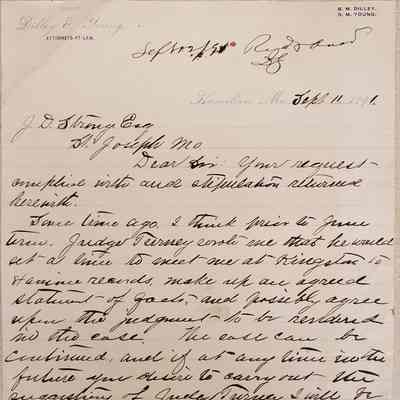 Dilley & Young,
ATTORNEYS-AT-LAW.
B. M. DILLEY.
G. M. YOUNG.
Recd & ansd
Hamilton, Mo. Sept. 11, 1891.
J. D. Strong Esq
St. Joseph Mo.
Dear Sir: Your request
complied with and stipulation returned
herewith.
Some time ago, I think prior to June
term, Judge Turney wrote me that he would
set a time to meet me at Kingston to
examine records, make up an agreed
statement of facts, and possibly agree
upon the judgment to be rendered
in the case. The case can be
continued, and if at any time in the
future you desire to carry out the
suggestions of Judge Turney I will be